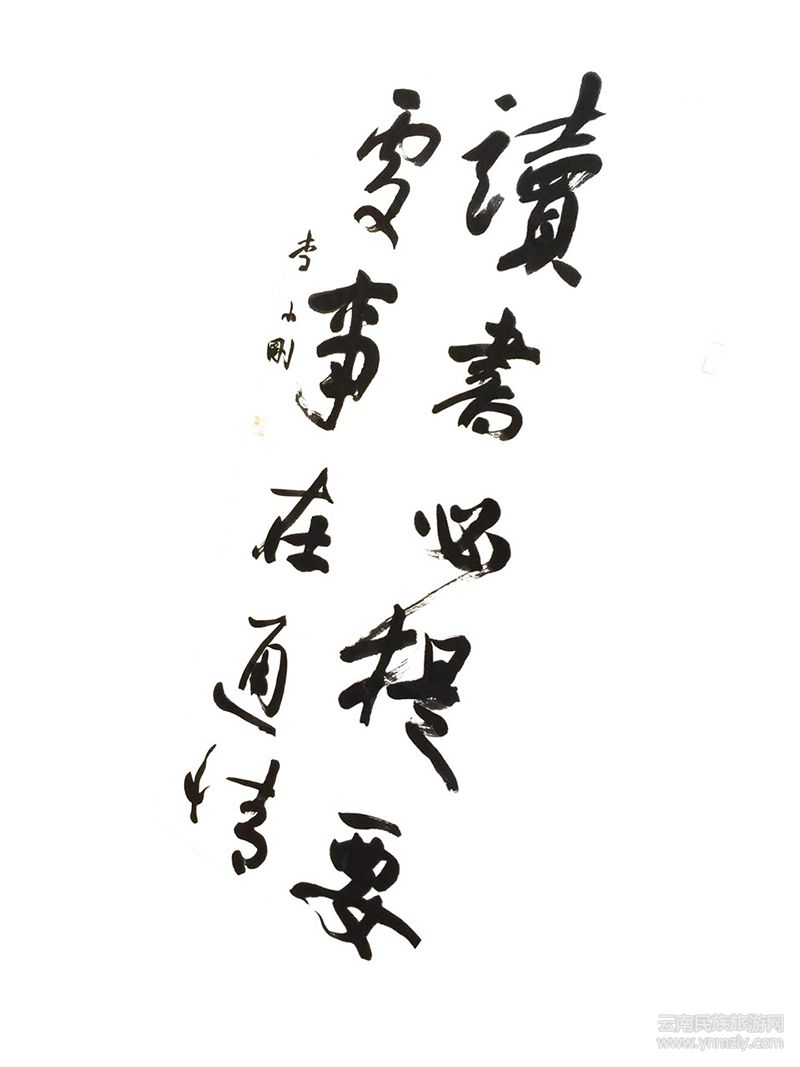 讀書必提要
處事在通情
李小剛
云南民族旅游网
www.ynmzly.com